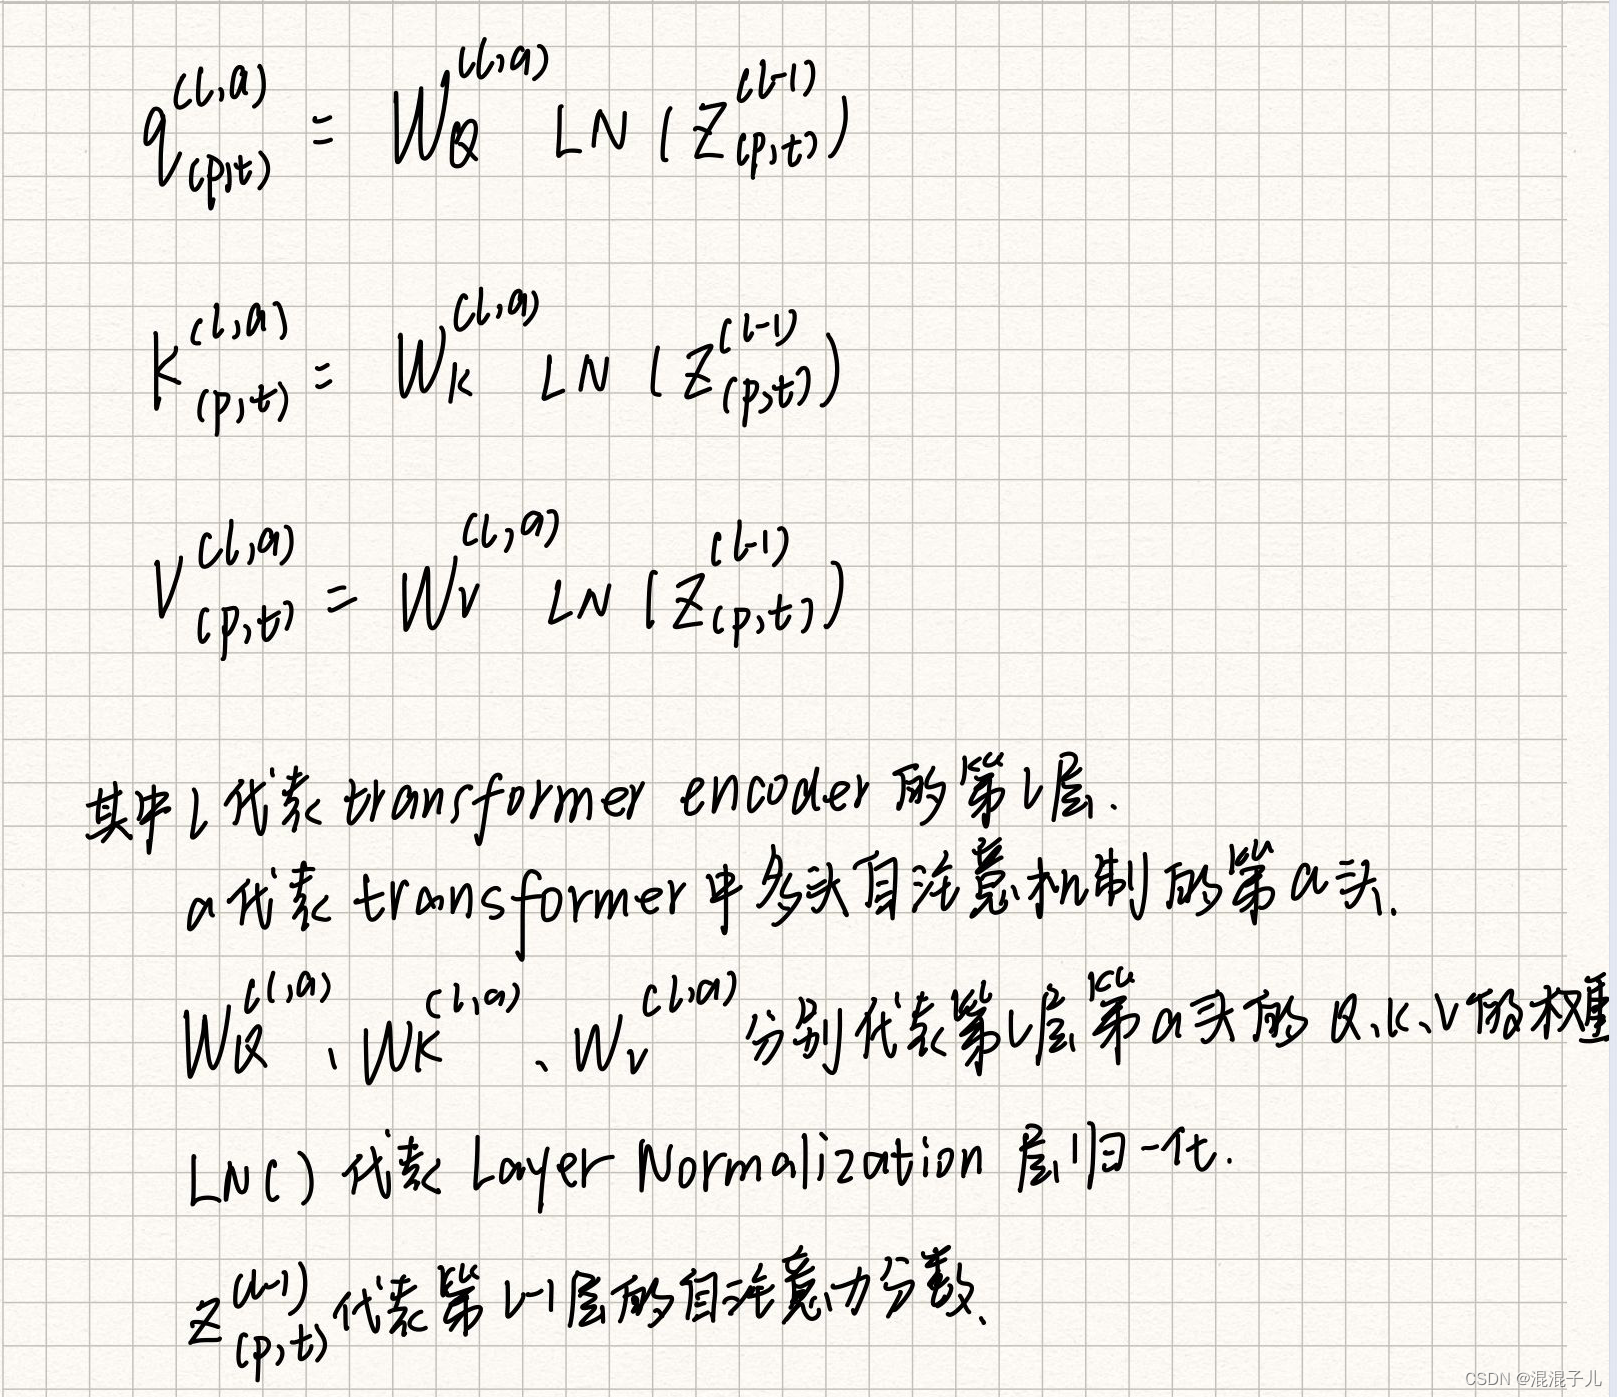 q^{(l,a)}_{(p,t)} = W_Q^{(l,a)} LN(Z^{(l-1)}_{(p,t)})
k^{(l,a)}_{(p,t)} = W_K^{(l,a)} LN(Z^{(l-1)}_{(p,t)})
V^{(l,a)}_{(p,t)} = W_V^{(l,a)} LN(Z^{(l-1)}_{(p,t)})
其中l代表transformer encoder的第l层.
a代表transformer中多头自注意机制的第a头.
W_Q^{(l,a)}、W_K^{(l,a)}、W_V^{(l,a)} 分别代表第l层第a头的Q、K、V的权重
LN( ) 代表 Layer Normalization 层归一化.
Z^{(l-1)}_{(p,t)}代表第l-1层的自注意力分数、
CSDN @混混子儿